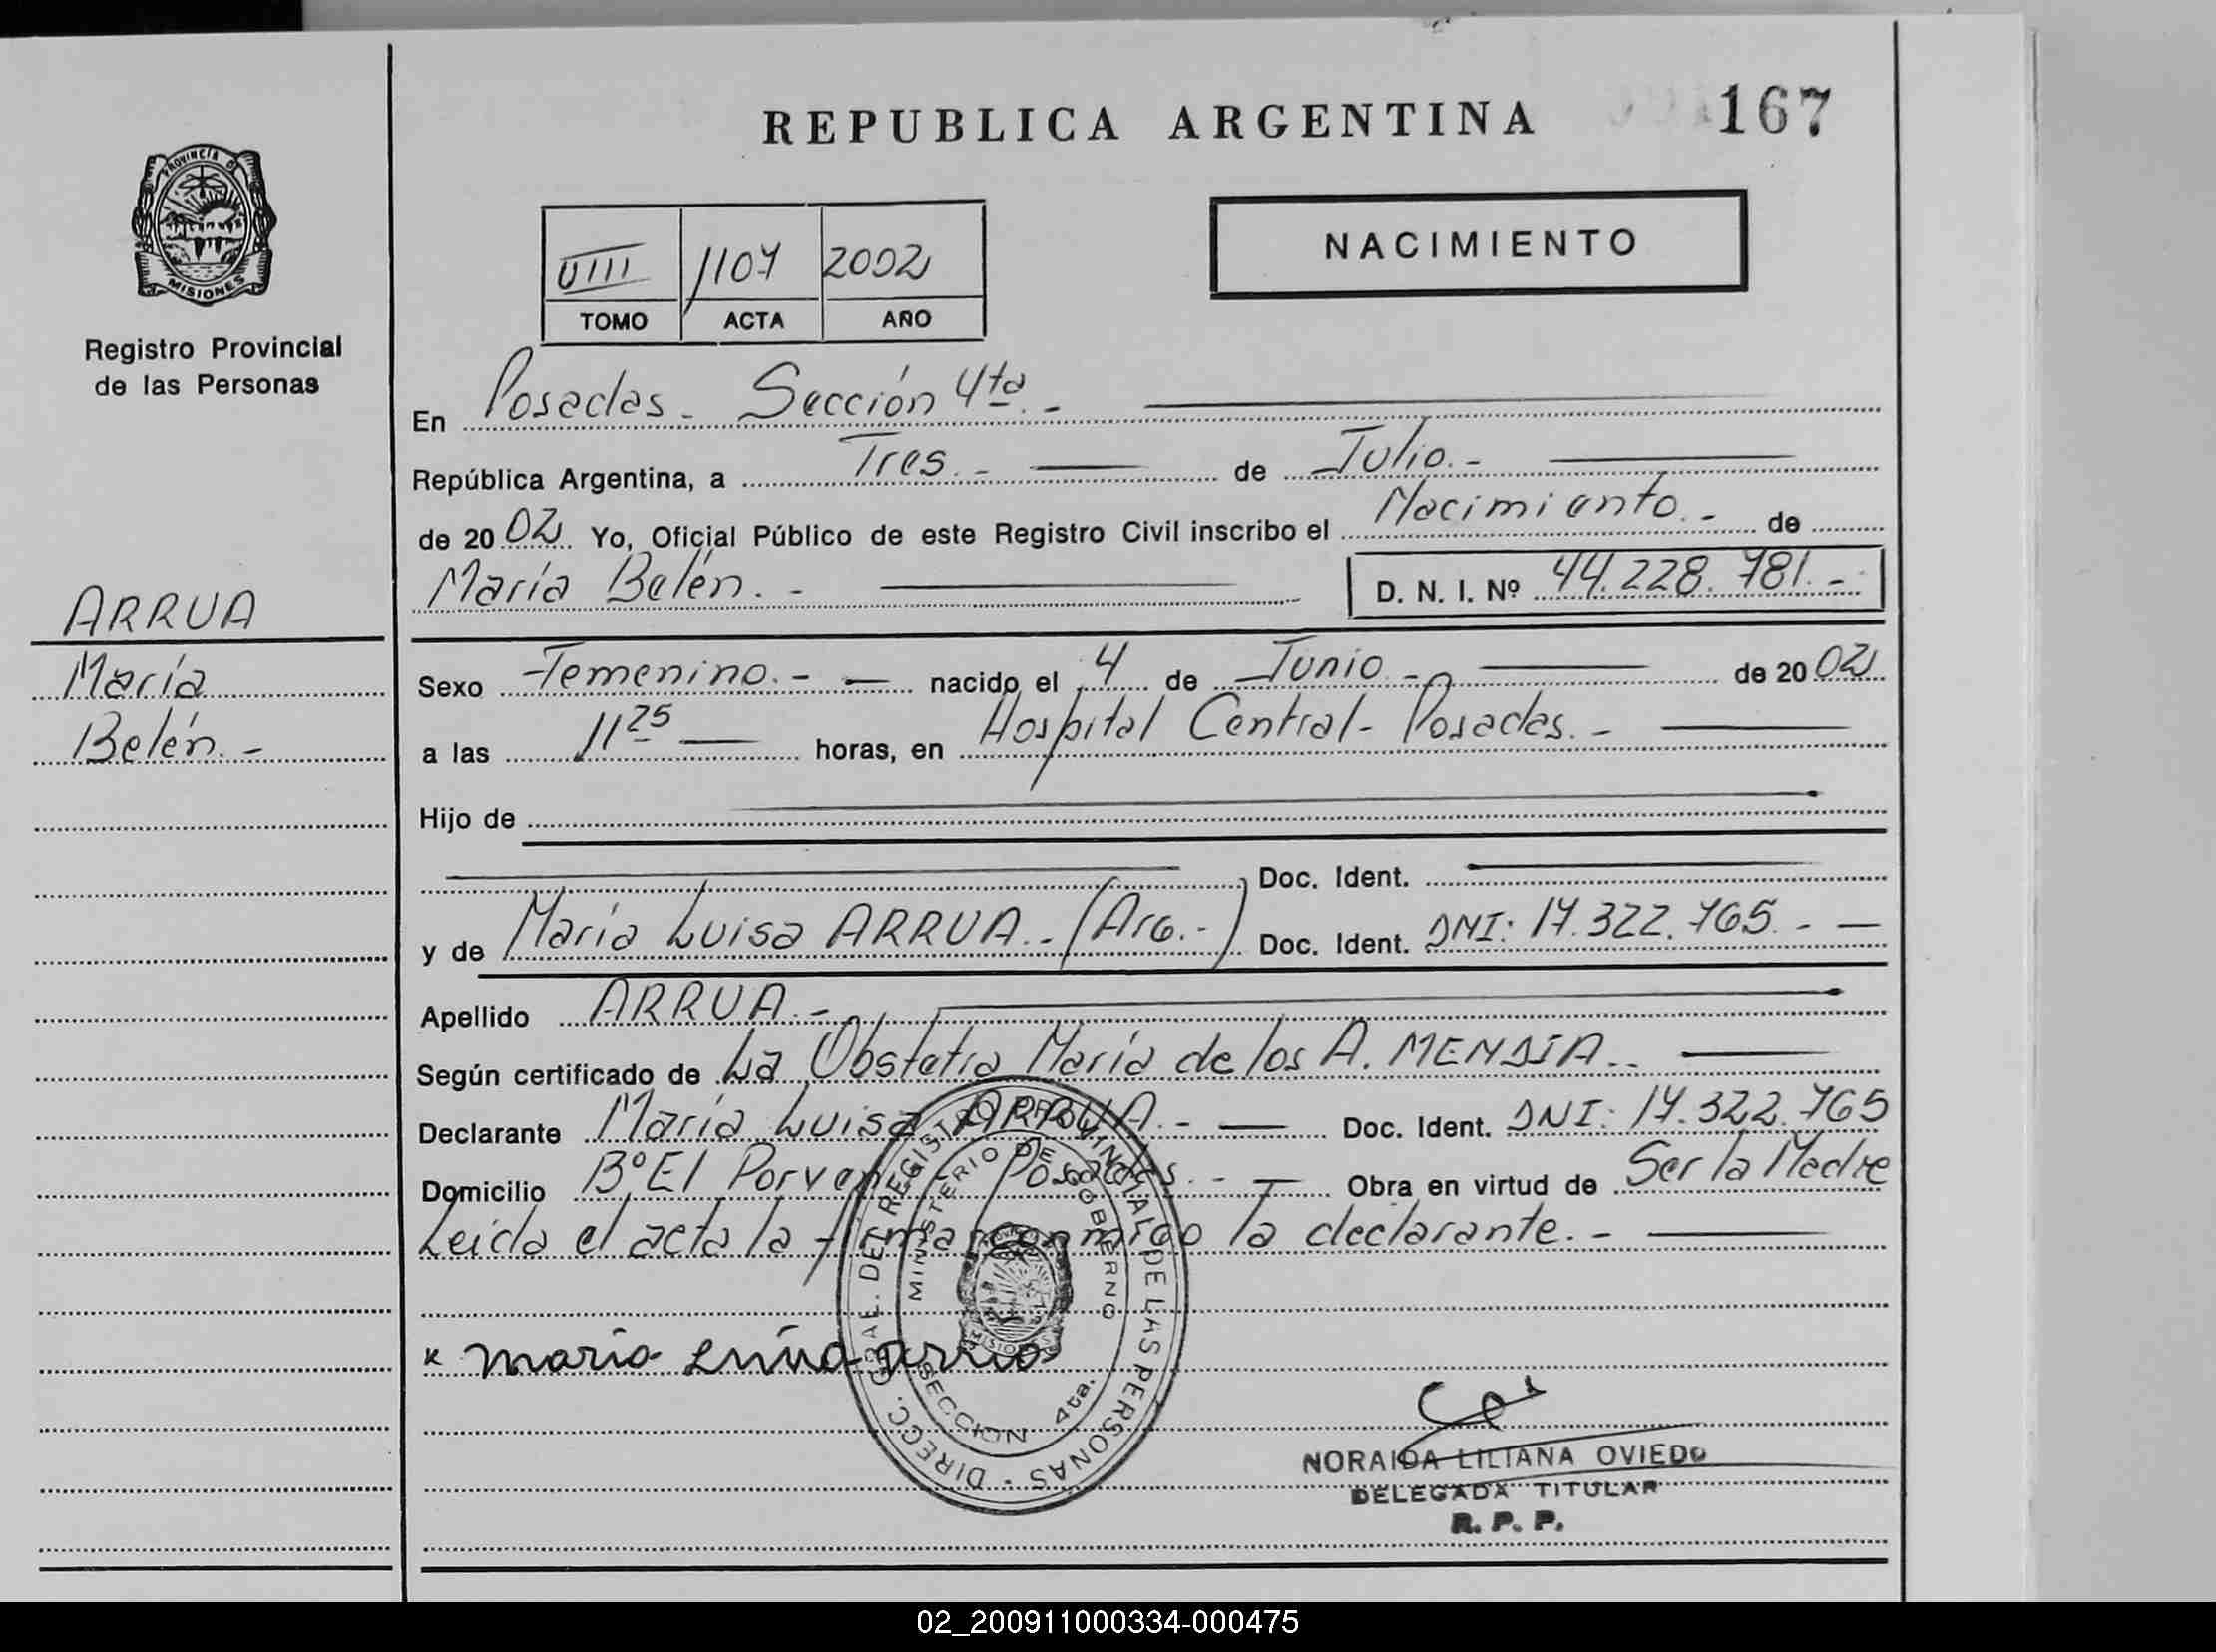 REPUBLICA ARGENTINA 167
PROVINCIA DE MISIONES
Registro Provincial
de las Personas
NACIMIENTO
VIII 1107 2002
TOMO ACTA AÑO
En Posadas - Sección 4ta.-
República Argentina, a Tres.- de Julio.-
de 2002 Yo, Oficial Público de este Registro Civil inscribo el Nacimiento.- de
María Belén.- D. N. I. Nº 44.228.781.-
ARRUA
María
Belén.-
Sexo Femenino.- nacido el 4 de Junio.- de 2002
a las 11 25 horas, en Hospital Central - Posadas.-
Hijo de
Doc. Ident.
y de María Luisa ARRUA.- (Arg.-) Doc. Ident. DNI: 17.322.765.-
Apellido ARRUA.-
Según certificado de La Obstetra María de los A. MENDIA.-
Declarante María Luisa ARRUA.- Doc. Ident. DNI: 17.322.765
Domicilio Bº El Porvenir Posadas.- Obra en virtud de Ser la Madre
Leida el acta la firma conmigo la declarante.-
DIRECC. GRAL. DEL REGISTRO PROVINCIAL DE LAS PERSONAS
MINISTERIO DE GOBIERNO
MISIONES
SECCION 4ta.
x maria luisa arrua
NORAIDA LILIANA OVIEDO
DELEGADA TITULAR
R. P. P.
02_200911000334-000475